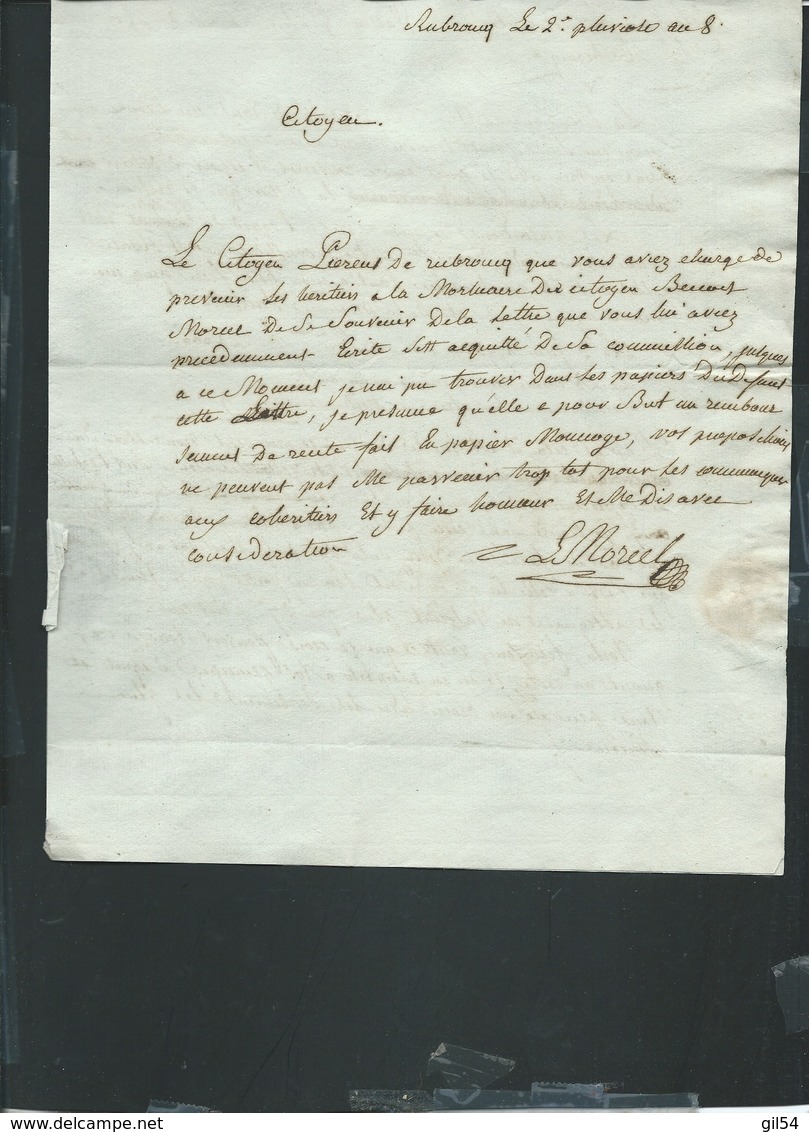 Rubrouq Le 2e pluviose an 8.
Citoyen.
Le Citoyen Pierens De rubrouq que vous aviez charge de
prevenir les heritiers a la Mortuaire du citoyen Benoit
Morcel De se souvenir De la Lettre que vous lui aviez
precedemment Ecrite s'est acquitté De sa commission, jusques
a ce Moment je n'ai pu trouver Dans les papiers Du Defunt
cette Lettre, je presume qu'elle a pour But un rembour
sement De rente fait En papier Monnoye, vos propositions
ne peuvent pas Me parvenir trop tot pour les communiquer
aux coheritiers Et y faire honneur Et Me Dis avec
consideration
L Morcel
gil54